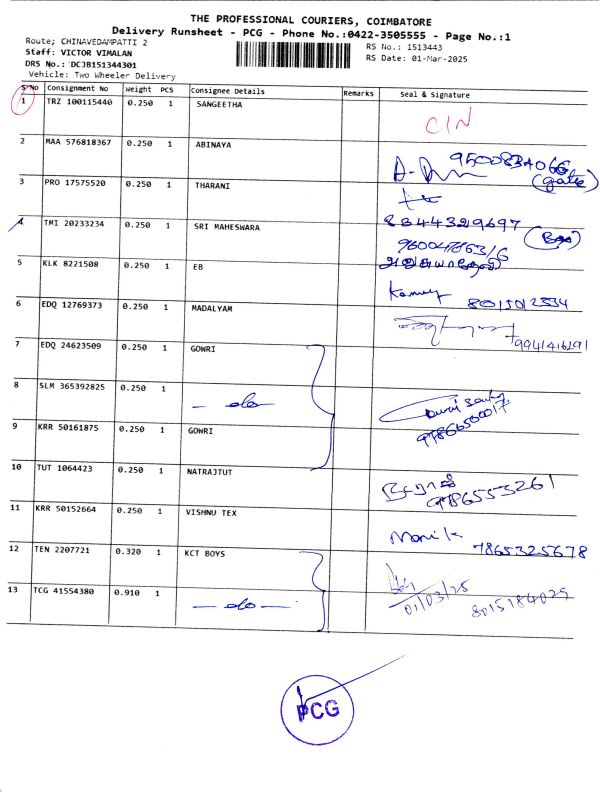 THE PROFESSIONAL COURIERS, COIMBATORE
Delivery Runsheet - PCG - Phone No.:0422-3505555 - Page No.:1
Route; CHINAVEDAMPATTI 2
RS No.: 1513443
Staff: VICTOR VIMALAN
RS Date: 01-Mar-2025
DRS No.: DCJB151344301
Vehicle: Two Wheeler Delivery
S No Consignment No Weight PCS Consignee Details Remarks Seal & Signature
1 TRZ 100115440 0.250 1 SANGEETHA CIN
2 MAA 576818367 0.250 1 ABINAYA 9500834066
(gate)
3 PRO 17575520 0.250 1 THARANI
8344329697
4 TMI 20233234 0.250 1 SRI MAHESWARA
5 KLK 8221508 0.250 1 EB
8015012334
6 EDQ 12769373 0.250 1 MADALYAM
9941416291
7 EDQ 24623509 0.250 1 GOWRI
8 SLM 365392825 0.250 1 - do -
9 KRR 50161875 0.250 1 GOWRI
10 TUT 1064423 0.250 1 NATRAJTUT
9786553261
11 KRR 50152664 0.250 1 VISHNU TEX
7865325678
12 TEN 2207721 0.320 1 KCT BOYS
13 TCG 41554380 0.910 1 - do - 01/03/25 8015184029
PCG